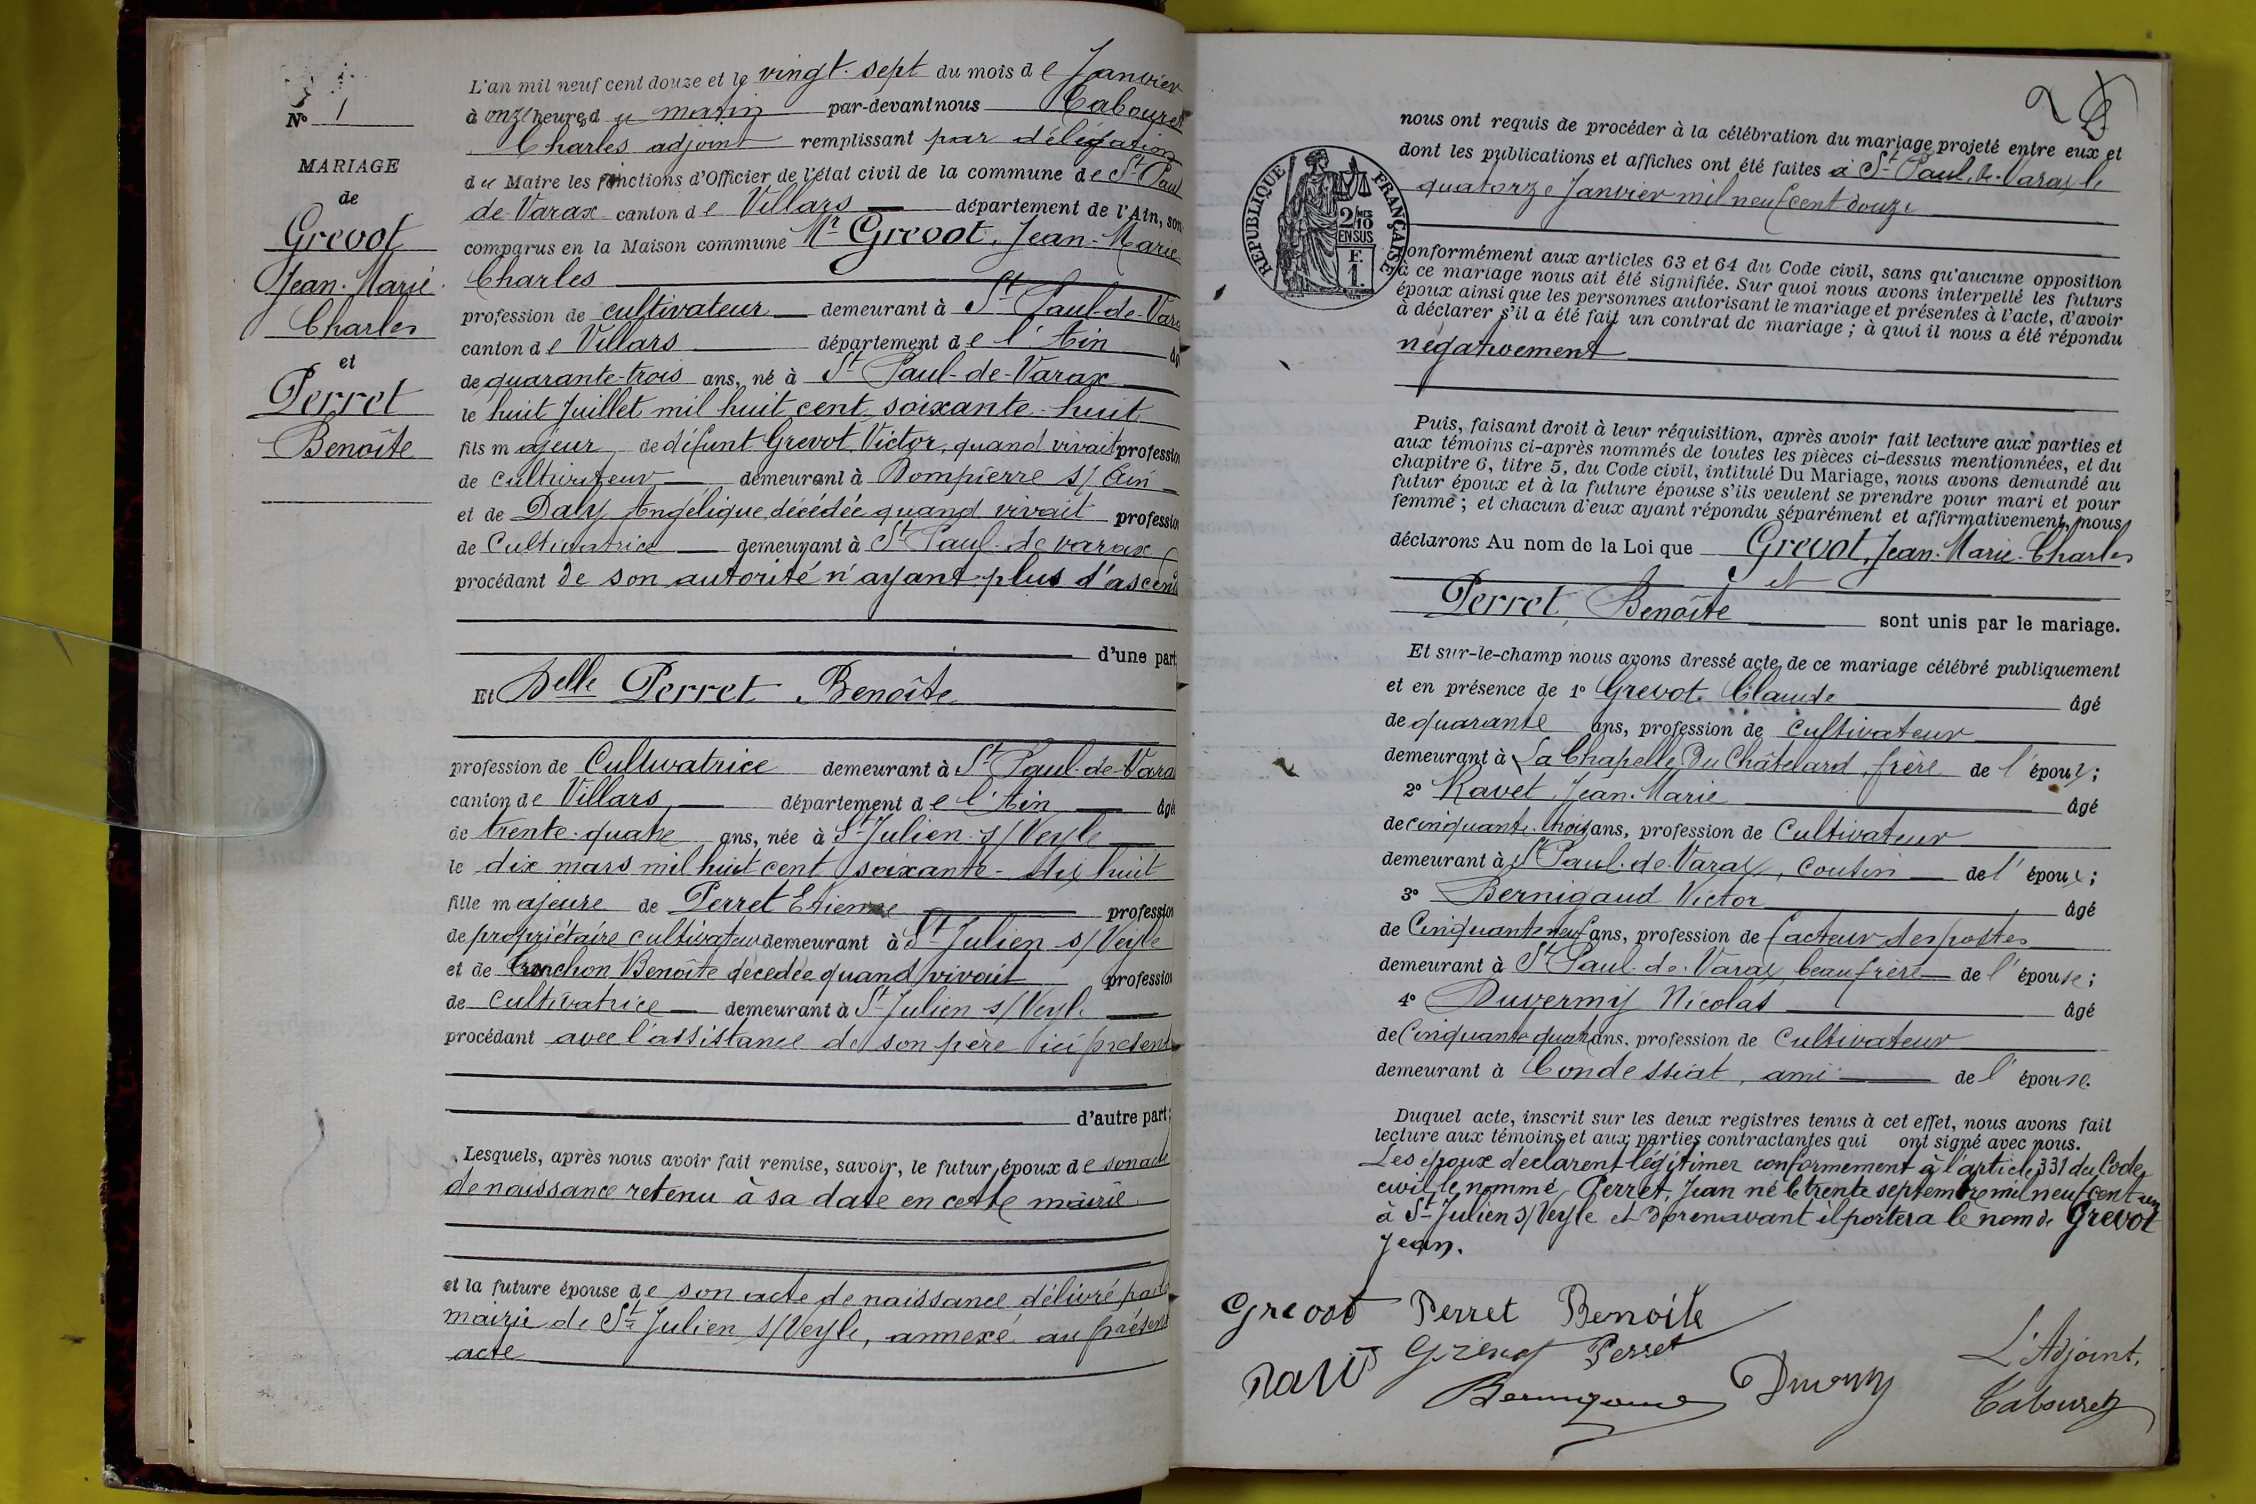 N° 1
MARIAGE
de
Grevot
Jean-Marie
Charles
et
Perret
Benoîte
L'an mil neuf cent douze et le vingt-sept du mois de Janvier
à onze heures du matin par-devant nous Cabouret
Charles adjoint remplissant par délégation
du Maire les fonctions d'Officier de l'état civil de la commune de St Paul
de Varax canton de Villars département de l'Ain, son
comparus en la Maison commune Mr Grevot, Jean-Marie-
Charles
profession de cultivateur demeurant à St Paul-de-Varax
canton de Villars département de l'Ain âgé
de quarante-trois ans, né à St Paul-de-Varax
le huit Juillet mil huit cent soixante-huit
fils majeur de défunt Grevot Victor, quand vivait profession
de cultivateur demeurant à Dompierre s/ Ain
et de Daly Angélique décédée quand vivait profession
de Cultivatrice demeurant à St Paul-de-varax
procédant de son autorité n'ayant plus d'ascend
d'une part
Et Delle Perret Benoîte
profession de Cultivatrice demeurant à St Paul-de-Vara
canton de Villars département de l'Ain âgé
de trente-quatre ans, née à St Julien s/ Veyle
le dix mars mil huit cent soixante-dix huit
fille majeure de Perret Etienne profession
de propriétaire cultivateur demeurant à St Julien s/ Veyle
et de Benoîte décédée quand vivait profession
de cultivatrice demeurant à St Julien s/ Veyle
procédant avec l'assistance de son père ici présent
d'autre part;
Lesquels, après nous avoir fait remise, savoir, le futur époux de son acte
de naissance retenu à sa date en cette mairie
et la future épouse de son acte de naissance délivré par la
mairie de St Julien s/ Veyle, annexé au présent
acte
2
REPUBLIQUE FRANÇAISE
2/10 MES
EN SUS
F.
1.
nous ont requis de procéder à la célébration du mariage projeté entre eux et
dont les publications et affiches ont été faites à St Paul-de-Varax le
quatorze Janvier mil neuf cent douze
conformément aux articles 63 et 64 du Code civil, sans qu'aucune opposition
à ce mariage nous ait été signifiée. Sur quoi nous avons interpellé les futurs
époux ainsi que les personnes autorisant le mariage et présentes à l'acte, d'avoir
à déclarer s'il a été fait un contrat de mariage ; à quoi il nous a été répondu
négativement
Puis, faisant droit à leur réquisition, après avoir fait lecture aux parties et
aux témoins ci-après nommés de toutes les pièces ci-dessus mentionnées, et du
chapitre 6, titre 5, du Code civil, intitulé Du Mariage, nous avons demandé au
futur époux et à la future épouse s'ils veulent se prendre pour mari et pour
femme ; et chacun d'eux ayant répondu séparément et affirmativement, nous
déclarons Au nom de la Loi que Grevot, Jean-Marie-Charles
et
Perret, Benoîte sont unis par le mariage.
Et sur-le-champ nous avons dressé acte de ce mariage célébré publiquement
et en présence de 1° Grevot Claude âgé
de quarante ans, profession de cultivateur
demeurant à La Chapelle Du Châtelard, frère de l'époux ;
2° Ravet Jean-Marie âgé
de cinquante-trois ans, profession de Cultivateur
demeurant à St Paul-de-Varax, cousin de l'époux ;
3° Bernigaud Victor âgé
de Cinquante neuf ans, profession de facteur des postes
demeurant à St Paul-de-Varax, beau frère de l'épouse ;
4° Nicolas âgé
de Cinquante quatre ans, profession de Cultivateur
demeurant à Condessiat, ami de l'épouse.
Duquel acte, inscrit sur les deux registres tenus à cet effet, nous avons fait
lecture aux témoins et aux parties contractantes qui ont signé avec nous.
Les époux déclarent légitimer conformement à l'article 331 du Code
civil, le nommé Perret, Jean né le trente septembre mil neuf cent un
à St Julien s/ Veyle et dorenavant il portera le nom de Grevot
Jean.
Grevot Perret Benoite
Grevot Perret
Ravet
L'Adjoint,
Cabouret